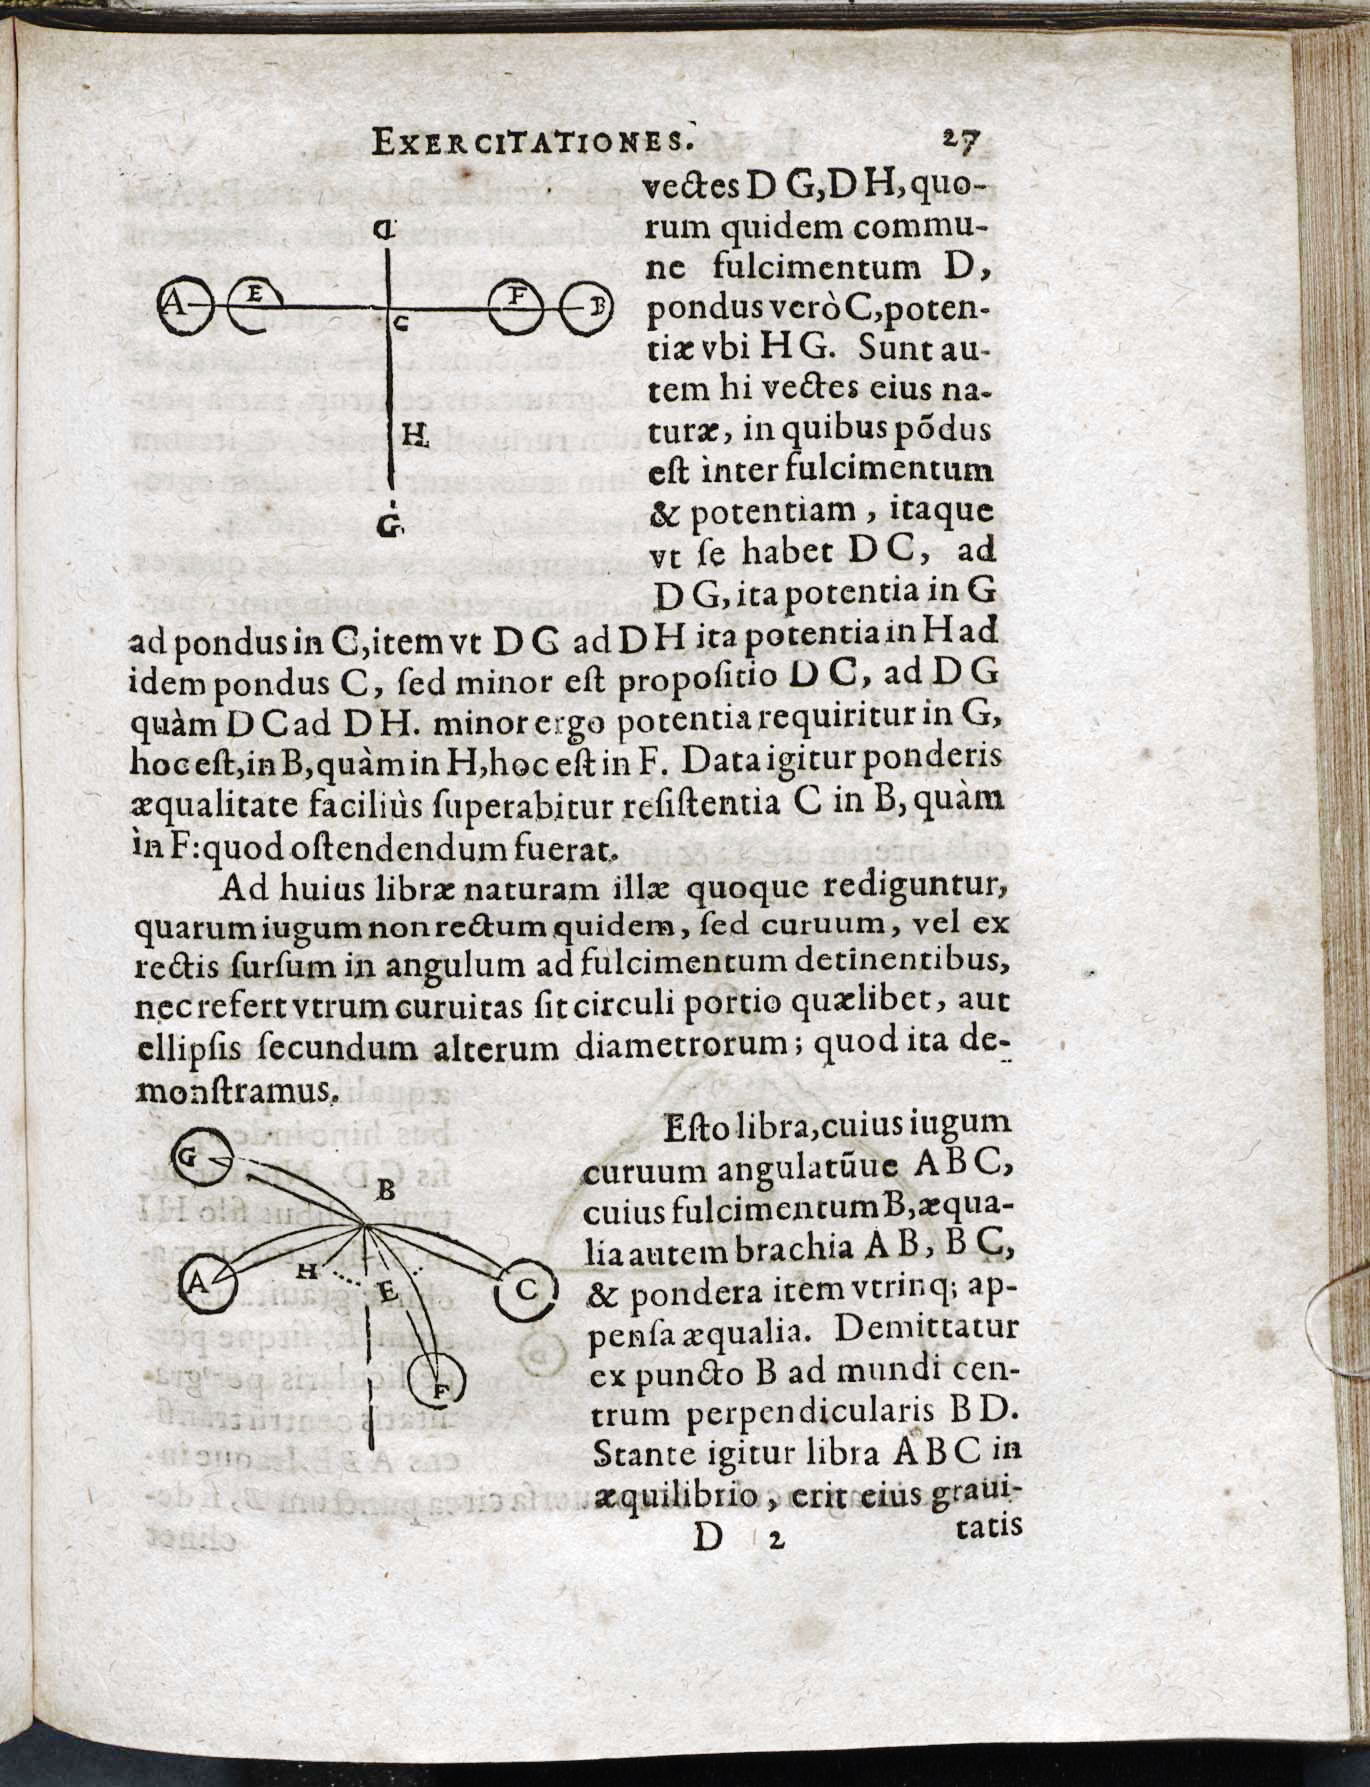 EXERCITATIONES. 27
vectes D G, D H, quo-
rum quidem commu-
ne fulcimentum D,
pondus verò C, poten-
tiæ vbi H G. Sunt au-
tem hi vectes eius na-
turæ, in quibus põdus
eſt inter fulcimentum
& potentiam , itaque
vt ſe habet D C, ad
D G, ita potentia in G
ad pondus in C, item vt D G ad D H ita potentia in H ad
idem pondus C, ſed minor eſt propoſitio D C, ad D G
quàm D C ad D H. minor ergo potentia requiritur in G,
hoc eſt, in B, quàm in H, hoc eſt in F. Data igitur ponderis
æqualitate faciliùs ſuperabitur reſiſtentia C in B, quàm
in F: quod oſtendendum fuerat.
Ad huius libræ naturam illæ quoque rediguntur,
quarum iugum non rectum quidem, ſed curuum, vel ex
rectis ſurſum in angulum ad fulcimentum detinentibus,
nec refert vtrum curuitas ſit circuli portio quælibet, aut
ellipſis ſecundum alterum diametrorum; quod ita de-
monſtramus.
Eſto libra, cuius iugum
curuum angulatũue A B C,
cuius fulcimentum B, æqua-
lia autem brachia A B, B C,
& pondera item vtrinq; ap-
penſa æqualia. Demittatur
ex puncto B ad mundi cen-
trum perpendicularis B D.
Stante igitur libra A B C in
æquilibrio, erit eius graui-
D 2 tatis
D
A E F B
C
H
G
G
B
A H E C
F